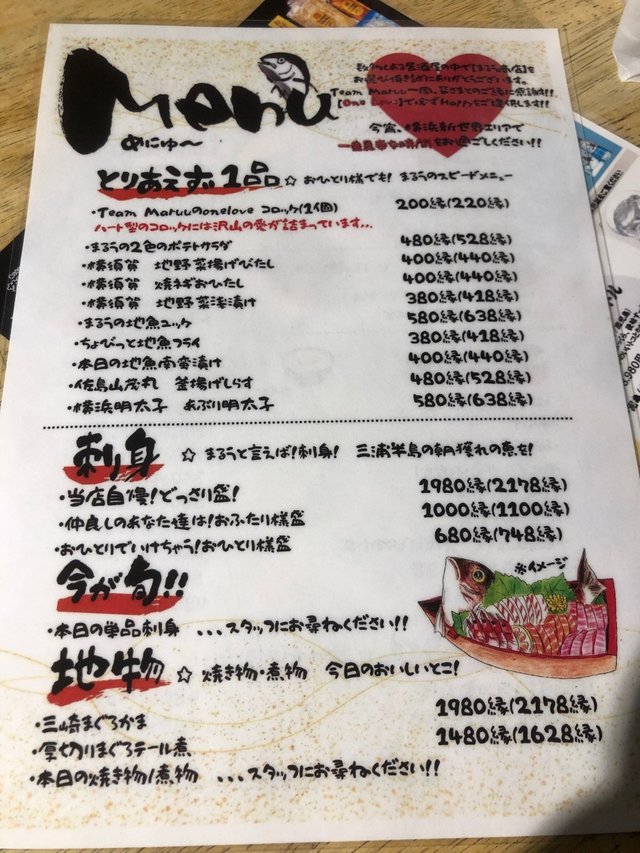 Maruu
めにゅ〜
数多くある居酒屋の中で【まるう商店】を
お選び頂き誠にありがとうございます。
Team Maruu一同、皆さまとのご縁に感謝!!
【One Love】で必ずHappyをご提供します!!
今宵、横浜新世界エリアで
をお過ごしください!!
とりあえず1品 ☆ おひとり様でも! まるうのスピードメニュー
・Team Maruuのonelove コロッケ(1個) 200縁(220縁)
ハート型のコロッケには沢山の愛が詰まっています...
・まるうの2色のポテトサラダ 480縁(528縁)
・横須賀 地野菜揚げびたし 400縁(440縁)
・横須賀 焼ネギおひたし 400縁(440縁)
・横須賀 地野菜浅漬け 380縁(418縁)
・まるうの地魚ユッケ 580縁(638縁)
・ちょびっと地魚フライ 380縁(418縁)
・本日の地魚南蛮漬け 400縁(440縁)
・佐島山茂丸 釜揚げしらす 480縁(528縁)
・横浜明太子 あぶり明太子 580縁(638縁)
刺身 ☆ まるうと言えば!刺身! 三浦半島の朝獲れの恵を!
・当店自慢!どっさり盛! 1980縁(2178縁)
・仲良しのあなた達は!おふたり様盛 1000縁(1100縁)
・おひとりでいけちゃう!おひとり様盛 680縁(748縁)
今が旬!!
※イメージ
・本日の単品刺身 ...スタッフにお尋ねください!!
地物 ☆ 焼き物・煮物 今日のおいしいとこ!
・三崎まぐろかま 1980縁(2178縁)
・厚切りまぐろテール煮 1480縁(1628縁)
・本日の焼き物/煮物 ...スタッフにお尋ねください!!